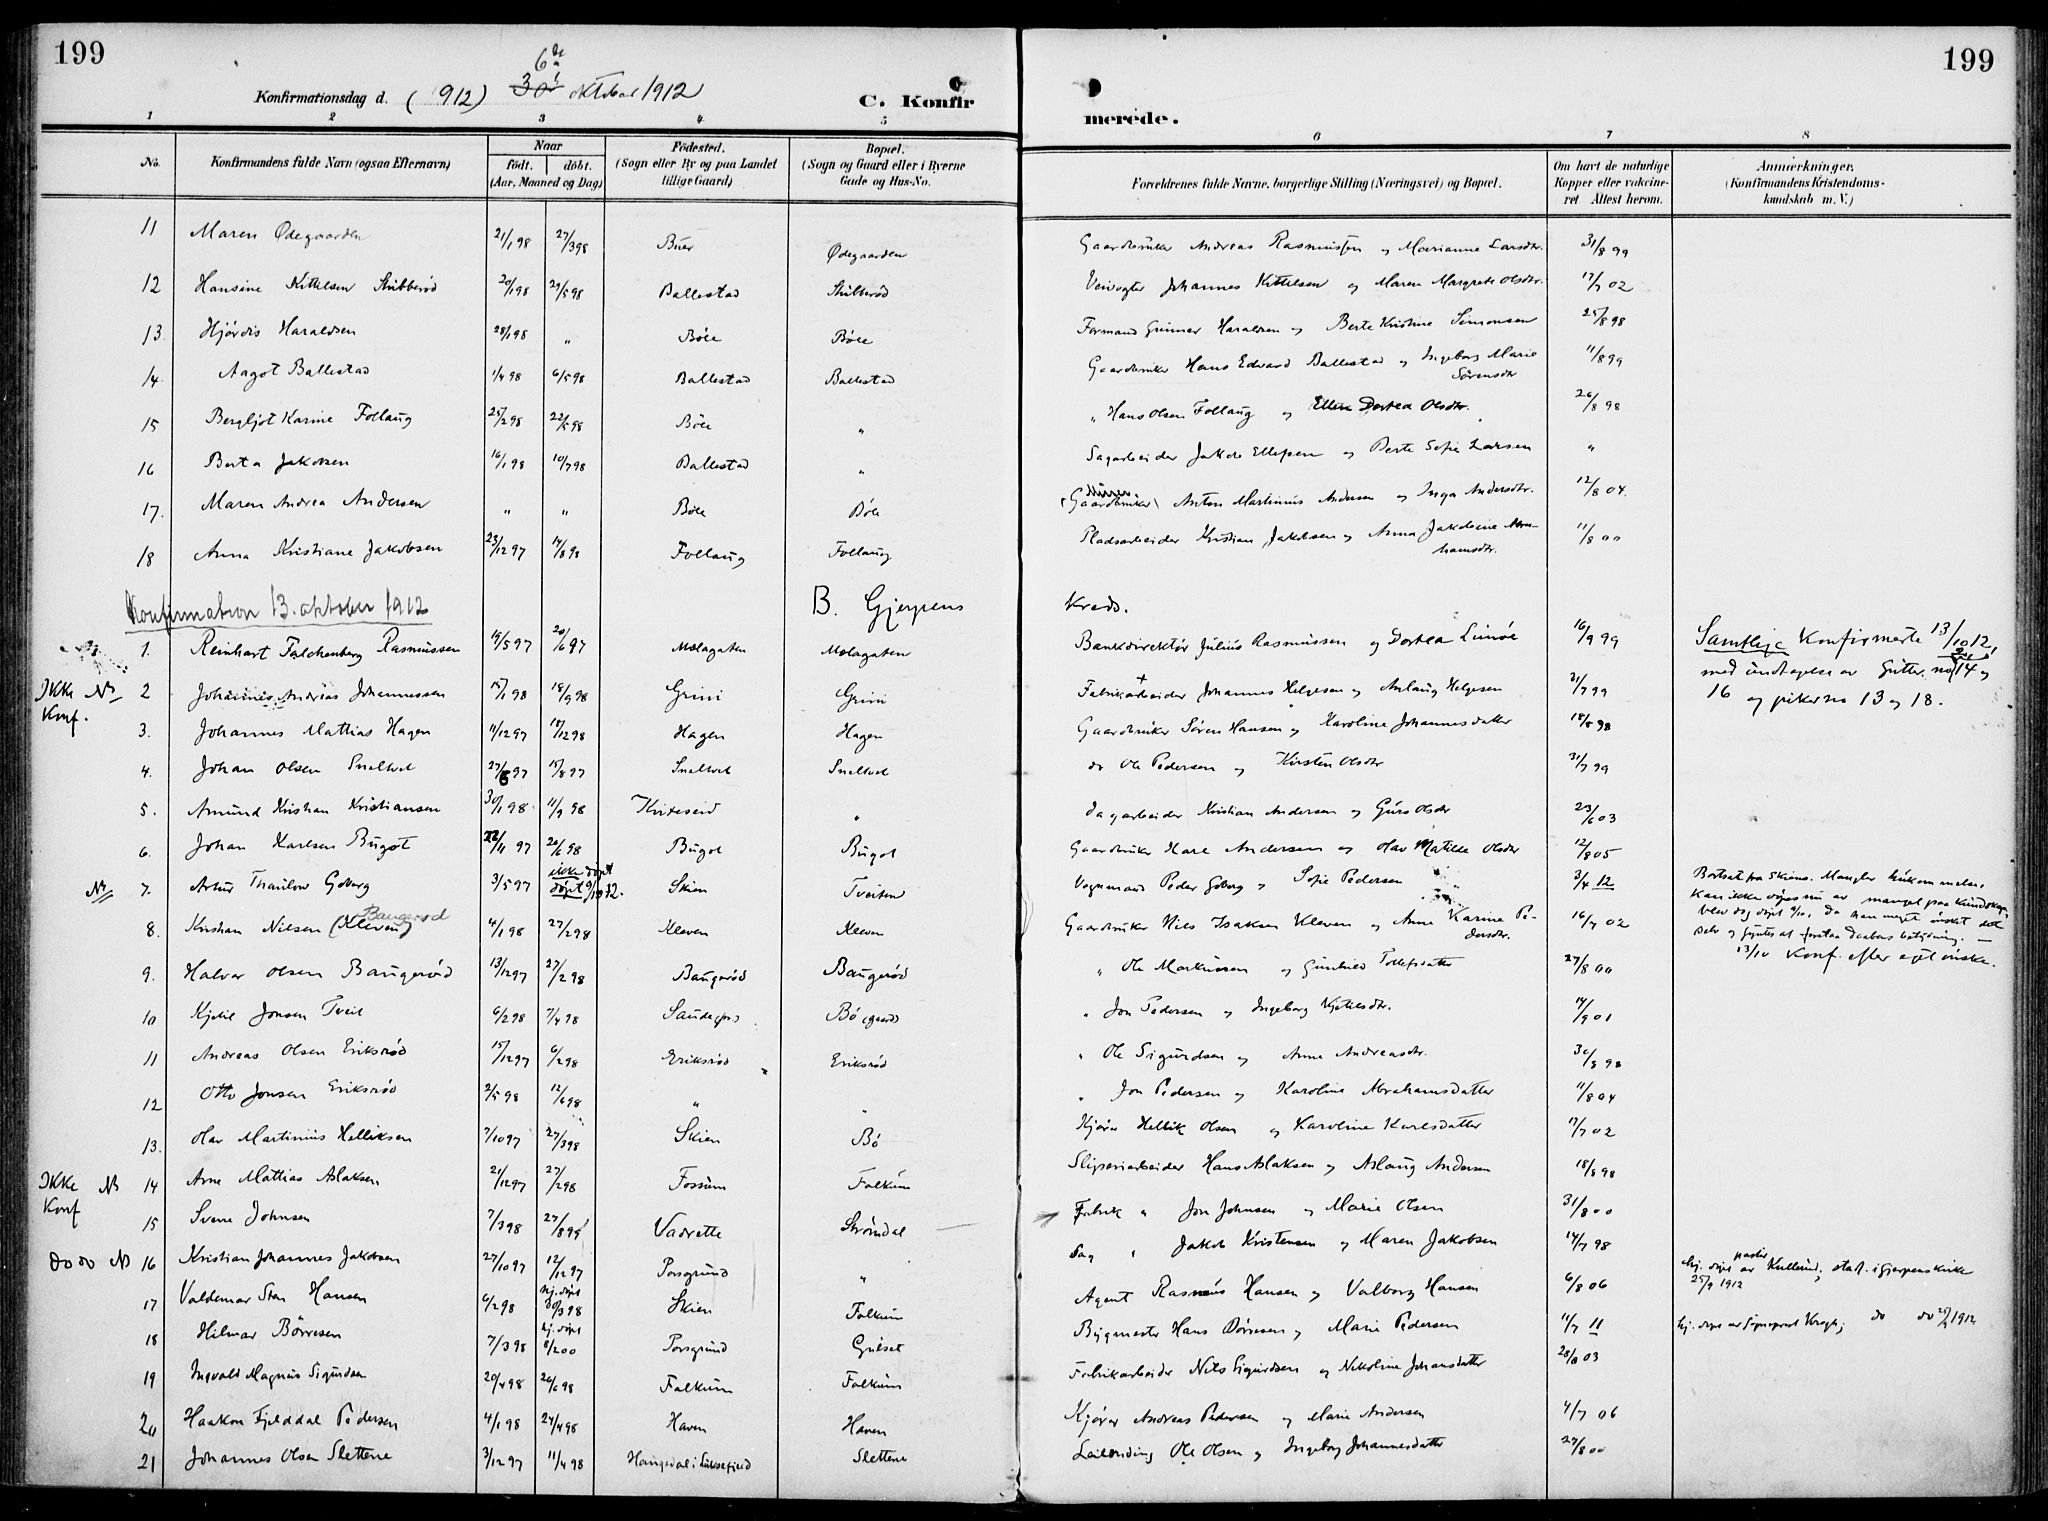 199
199
6te
Konfirmationsdag d. (1912) oktober 1912
C. Konfir
merede.
1 2 3 4 5 6 7 8
No. Konfirmandens fulde Navn (ogsaa Efternavn) Naar født. døbt. (Aar, Maaned og Dag) Fødested. (Sogn eller By og paa Landet tillige Gaard) Bopæl. (Sogn og Gaard eller i Byerne Gade og Hus-No. Forældrenes fulde Navne, borgerlige Stilling (Næringsvei) og Bopæl. Om havt de naturlige Kopper eller vakcineret Attest herom. Anmærkninger. (Konfirmandens Kristendomskundskab m. V.)
11 Maren Ødegaarden 21/1 98 27/3 98 Buer Ødegaarden Gaardbruker Andreas Rasmussen og Marianne Larsdtr. 31/8 99
12 Hansine Kittilsen Stubberød 20/1 98 29/5 98 Ballestad Stubberød Veivogter Johannes Kittilsen og Maren Margrete Olsdtr. 17/7 02
13. Hjørdis Haraldsen 28/1 98 " Bøle Bøle Formand Gunnar Haraldsen og Berte Kristine Simonsen 25/8 98
14. Aagot Ballestad 1/4 98 6/5 98 Ballestad Ballestad Gaardbruker Hans Edvard Ballestad og Ingeborg Marie Sørensdtr 11/8 99
15 Bergljot Karine Follaug 25/2 98 22/5 98 Bøle " " Hans Olsen Follaug og Ellen Dortea Olsdtr. 26/8 98
16 Berta Jakobsen 16/1 98 10/7 98 Ballestad " Sagarbeider Jakob Ellefsen og Berte Sofie Larsen "
17. Maren Andrea Andersen " " Bøle Bøle (Gaardbruker) Anton Martinius Andersen og Inga Andersdtr. 12/8 04.
18 Anna Kristiane Jakobsen 23/12 97 14/8 98 Follaug Follaug Pladsarbeider Kristian Jakobsen og Anna Jakobine Abrahamsdtr. 11/8 00
Konfirmation 13. oktober 1912 B. Gjerpens Kreds.
1. Reinhart Falchenberg Rasmussen 19/5 97 20/6 97 Mælagaten Mælagaten Bankdirektør Julius Rasmussen og Dortea Limøe 16/9 99 Samtlige konfirmerte 13/10 12,
med undtagelse av gutter no 2, 14 og
16 og piker no 13 og 18.
Ikke Konf. NB 2 Johannes Andreas Johannessen 15/1 98 18/9 98 Grini Grini Fabrikarbeider Johannes Helgesen og Aslaug Helgesen 31/7 99
3. Johannes Mattias Hagen 11/12 97 18/12 98 Hagen Hagen Gaardbruker Søren Hansen og Karoline Johannesdatter 18/8 98
4. Johan Olsen Sneltvet 27/6 97 15/8 97 Sneltvet Sneltvet do Ole Pedersen og Kirsten Olsdtr 31/7 99
5. Amund Kristian Kristiansen 30/1 98 11/9 98 Kviteseid " Dagarbeider Kristian Andersen og Guro Olsdtr 23/6 03
6. Johan Karlsen Bugot 22/11 97 26/6 98 Bugot Bugot Gaardbruker Karl Andersen og Olav Matilde Olsdtr 12/8 05
NB 7. Artur Thaulow Goberg 3/5 97 ikke døpt døpt 9/10 12. Skien Tveiten Vognmand Peder Goberg og Sofie Pedersen 3/4 12 Bortsat fra Skiens. Mangler hukommelse,
kan ikke døpes nu av mangel paa kundskap,
blev dog døpt 9/10, da han meget ønsket det
selv og syntes at forstaa daabens betydning. —
13/10 Konf. efter eget ønske.
8. Kristian Nilsen (Kleven) Baugerød 4/1 98 27/2 98 Kleven Kleven Gaardbruker Nils Isaksen Kleven og Anne Karine Pedersdtr. 16/7 02
9. Halvor Olsen Baugerød 13/12 97 27/2 98 Baugerød Baugerød " Ole Markussen og Gunhild Tollefsdatter 27/8 00
10 Kjetil Jonsen Tveit 6/2 98 7/4 98 Saude Bø (gaard) " Jon Pedersen og Ingeborg Kjetilsdtr. 14/9 01
11 Andreas Olsen Eriksrød 15/12 97 6/2 98 Eriksrød Eriksrød " Ole Sigurdsen og Anne Andreasdtr. 30/8 98
12 Otto Jonsen Eriksrød 2/5 98 12/6 98 " " " Jon Pedersen og Karoline Abrahamsdatter 11/8 04
13. Olav Martinius Helliksen 7/10 97 27/3 98 Skien Bø Kjører Hellik Olsen og Karoline Karlsdatter 17/7 02
Ikke Konf NB 14 Arne Mattias Aslaksen 21/12 97 27/2 98 Fossum Falkum Sliperiarbeider Hans Aslaksen og Aslaug Andersen 18/8 98
15 Sverre Johnsen 7/3 98 27/8 99 Vadrette Strømdal Fabrik " Jon Johnsen og Marie Olsen 31/8 00
do do NB 16 Kristian Johannes Jakobsen 27/10 97 12/12 97 Porsgrund " Sag " Jakob Kristensen og Maren Jakobsen 14/7 98
17 Valdemar Stan Hansen 6/2 98 hj. døpt 30/3 98 Skien Falkum Agent Rasmus Hansen og Valborg Hansen 6/8 06 hj. døpt av pastor Kullerud, stadf. i Gjerpens kirke 25/9 1912
18 Hilmar Børresen 7/3 98 hj. døpt 8/2 00 Porsgrund Gulset Bygmester Hans Børresen og Marie Pedersen 11/7 11 hj. døpt av Sogneprest Krogh; do do 29/9 1912
19 Ingvald Magnus Sigurdsen 20/4 98 26/6 98 Falkum Falkum Fabrikarbeider Nils Sigurdsen og Nikoline Johansdatter 28/8 03
20 Haakon Fjelddal Pedersen 4/1 98 24/4 98 Haven Haven Kjører Andreas Pedersen og Marie Andersen 4/7 06
21 Johannes Olsen Slettene 3/12 97 11/4 98 Haugedal i Luksefjeld Slettene Leilending Ole Olsen og Ingeborg Johannesdatter 27/8 00